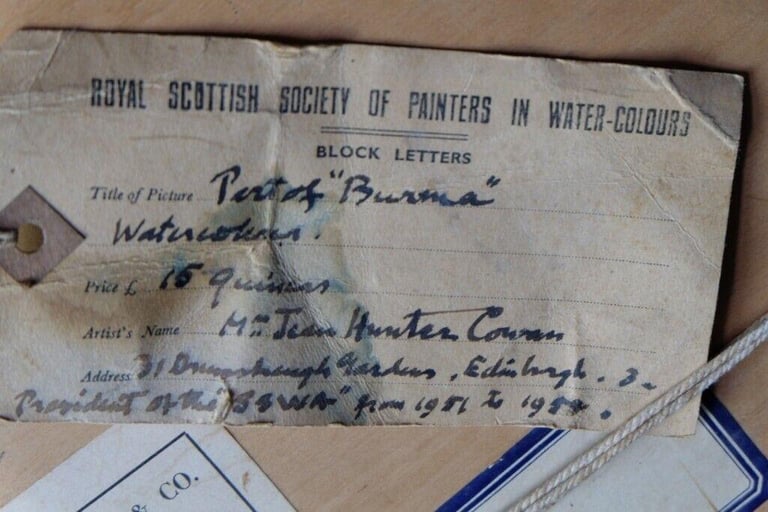 ROYAL SCOTTISH SOCIETY OF PAINTERS IN WATER-COLOURS
BLOCK LETTERS
Title of Picture Port of "Burma"
Watercolour.
Price £ 15 guineas
Artist's Name Mrs Jean Hunter Cowan
Address 31 Drumsheugh Gardens, Edinburgh. 3.
President of the from 1951 to
& CO.